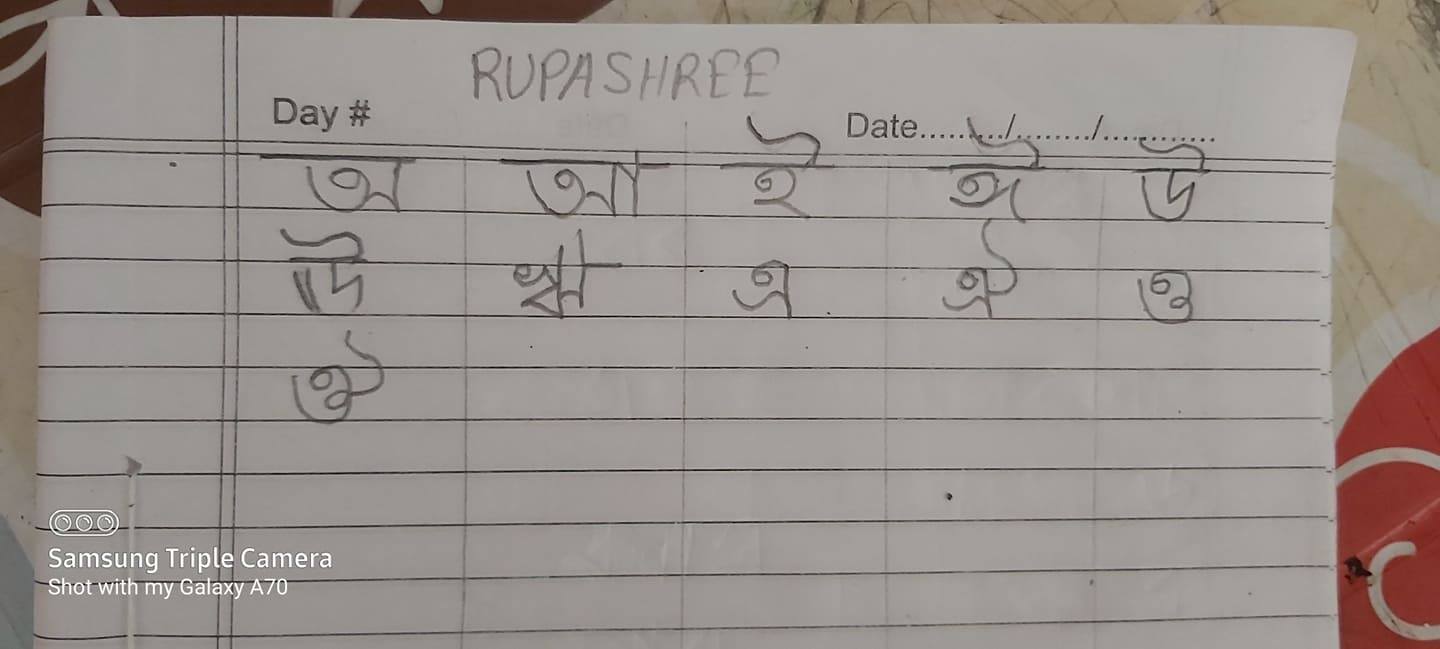 RUPASHREE
Day #
Date....../......../............
অ আ ই ঈ উ
ঊ ঋ এ ঐ ও
ঔ
Samsung Triple Camera
Shot with my Galaxy A70